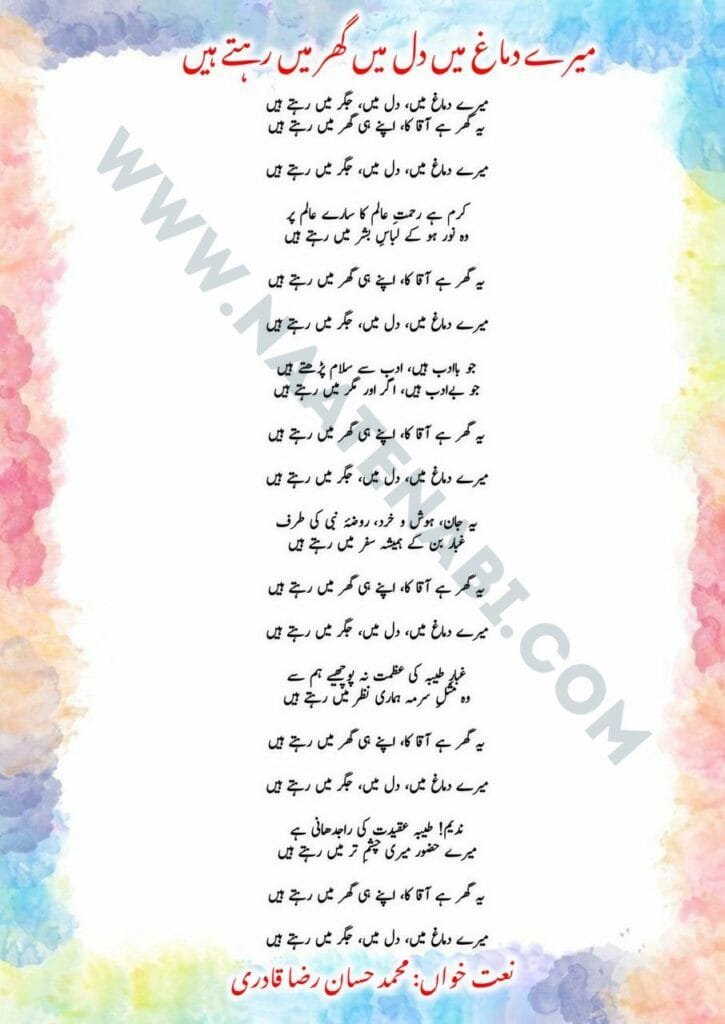 میرے دماغ میں دل میں گھر میں رہتے ہیں
میرے دماغ میں، دل میں، جگر میں رہتے ہیں
یہ گھر ہے آقا کا، اپنے ہی گھر میں رہتے ہیں
میرے دماغ میں، دل میں، جگر میں رہتے ہیں
کرم ہے رحمتِ عالم کا سارے عالم پر
وہ نور ہو کے لباسِ بشر میں رہتے ہیں
یہ گھر ہے آقا کا، اپنے ہی گھر میں رہتے ہیں
میرے دماغ میں، دل میں، جگر میں رہتے ہیں
جو باادب ہیں، ادب سے سلام پڑھتے ہیں
جو بےادب ہیں، اگر اور مگر میں رہتے ہیں
یہ گھر ہے آقا کا، اپنے ہی گھر میں رہتے ہیں
میرے دماغ میں، دل میں، جگر میں رہتے ہیں
یہ جان، ہوش و خرد، روضۂ نبی کی طرف
غبار بن کے ہمیشہ سفر میں رہتے ہیں
یہ گھر ہے آقا کا، اپنے ہی گھر میں رہتے ہیں
میرے دماغ میں، دل میں، جگر میں رہتے ہیں
غبارِ طیبہ کی عظمت نہ پوچھیے ہم سے
وہ مثلِ سرمہ ہماری نظر میں رہتے ہیں
یہ گھر ہے آقا کا، اپنے ہی گھر میں رہتے ہیں
میرے دماغ میں، دل میں، جگر میں رہتے ہیں
ندیم! طیبہ عقیدت کی راجدھانی ہے
میرے حضور میری چشمِ تر میں رہتے ہیں
یہ گھر ہے آقا کا، اپنے ہی گھر میں رہتے ہیں
میرے دماغ میں، دل میں، جگر میں رہتے ہیں
نعت خواں: محمد حسان رضا قادری
WWW.NAATENABI.COM